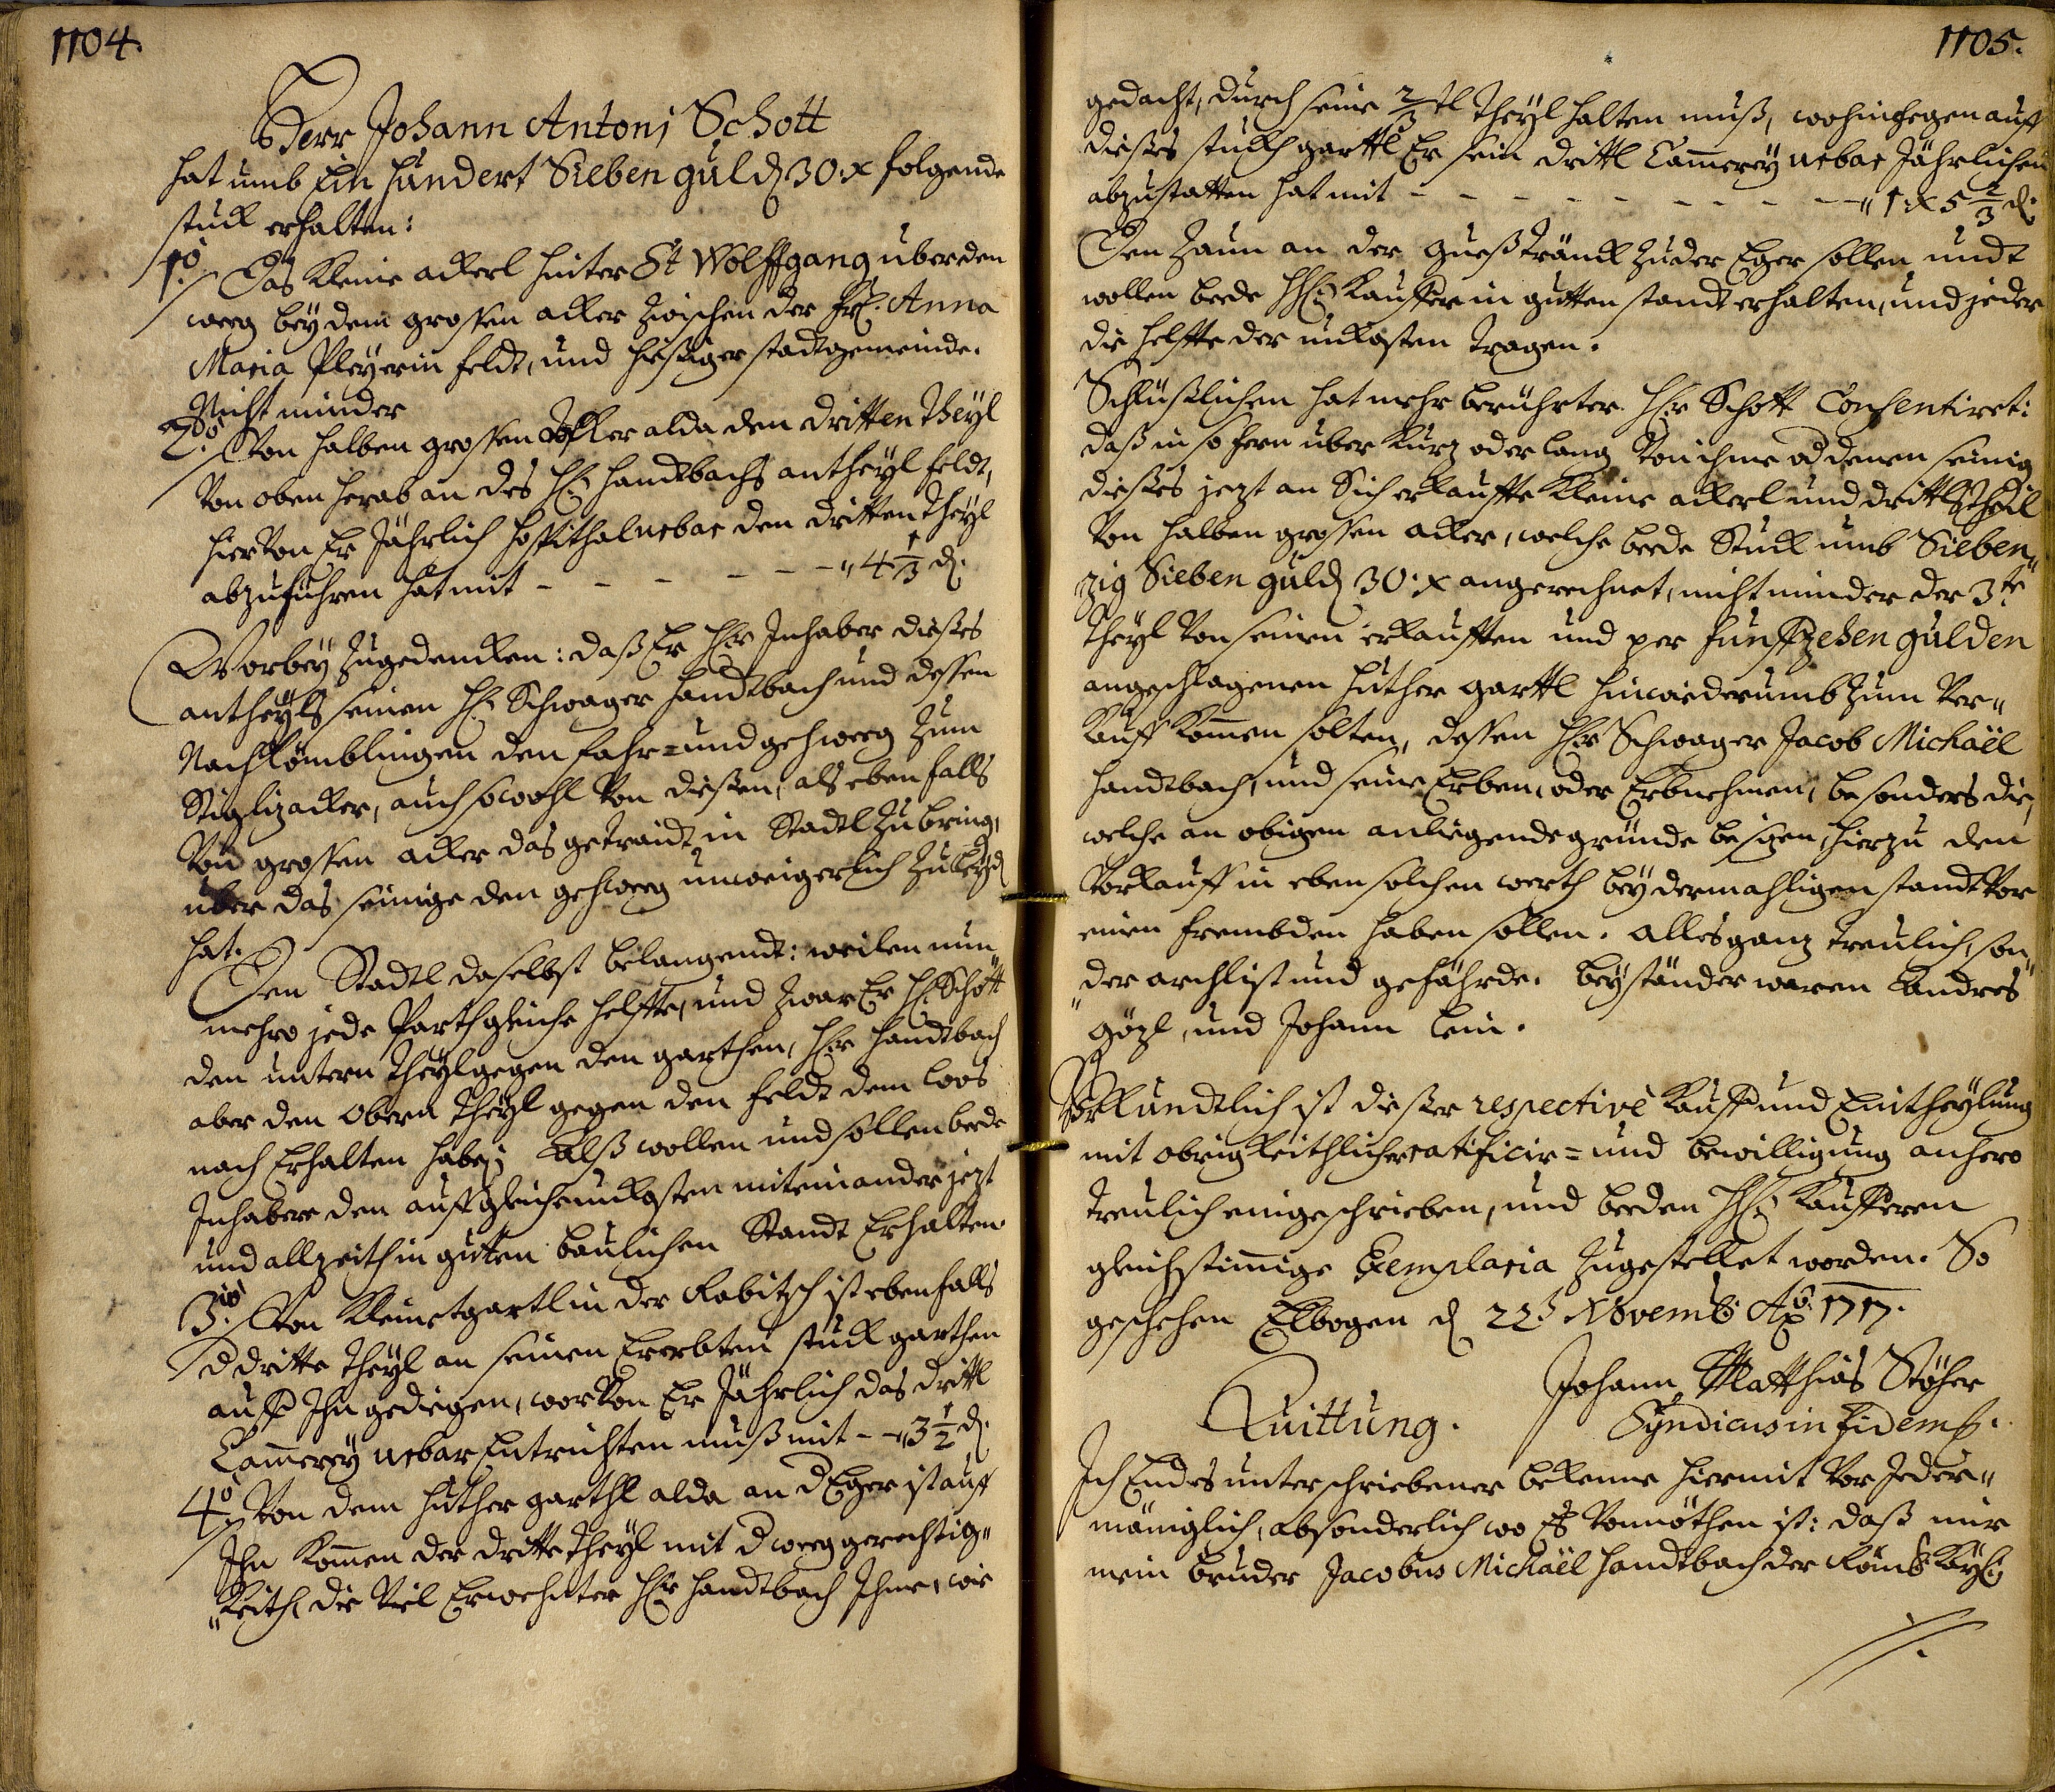 1104.
Herr Johann Antonj Schott
hat umb Ein hundert Sieben guld 30. x folgende
stuck erhalten:
1o. Das kleine ackerl hinter St Wolffgang über den
weeg bey dem grossen acker zwischen der Fr. Anna
Maria Pleyerin feldt, und hiesiger stadtgemeinde.
Nicht minder
2do. Von halben grossen Acker alda den dritten Theyl
von oben herab an des H: Handtbachs antheyl feldt,
hiervon Er Jährlich Hospithal urbar den dritten Theyl
abzuführen hat mit - - - - - - - " 4 1/3 d.
Worbey zugedencken: daß Er Hr Inhaber dieses
antheyls seinen H: Schwager Handtbach und dessen
Nachkömblingen den fahr= und gehweeg zum
Stiglizacker, auch sowohl von diesen, als ebenfalls
von grossen acker das getraidt in Stadtl zubring,
über das seinige den gehweeg unweigerlich zu
hat.
Den Stadtl daselbst belangendt: weilen nun"
mehro jede Parth gleiche helffte, und zwar Er H: Schott
den untern Theyl gegen den garthen, Hr Handtbach
aber den Obern Theyl gegen den feldt dem Loos
nach Erhalten haben; Alß wollen und sollen beede
Inhabere den auff gleiche unkosten miteinander jezt
und allzeith in gutten baulichen Standt Erhalten.
3tio. Von kleinetgartl in der Rabitsch ist ebenfalls
d dritte Theyl an seinen Ererbten stuck garthen
auff Ihn gediegen, worvon Er Jährlich das drittl
Cammerey urbar Entrichten muß mit - - " 3 1/2 d.
4to. Von dem Huther garthl alda an d Eger ist auff
Ihn kommen der dritte Theyl mit d weeg gerechtig"
"keith, die viel Erwehnter Hr Handtbach Ihme, wie
1105.
gedacht, durch seine 2/3tl Theyl halten muß, wohingegen auff
dieses stuckh garttl Er sein drittl Cammerey urbar Jährlichen
abzustatten hat mit - - - - - - - - - " 1 x 5 2/3 d.
Den Zaun an der Gueßtränck zu der Eger sollen undt
wollen beede HH: Kauffere in gutten standt erhalten, und jeder
die helffte der unkosten tragen.
Schlüßlichen hat mehr berührter Hr Schott Consentiret:
daß in so fern über kurz oder lang von ihme od denen seinig
dieses jezt an Sich erkauffte kleine ackerl und drittltheil
von halben grossen acker, welche beede Stuck umb Sieben"
zig Sieben guld 30. x angerechnet, nicht minder der 3te
Theyl von seinen erkaufften und per funffzehen gulden
angeschlagenen Huther garttl hinwiederumb zum Ver"
kauff kommen solten, dessen Hr Schwager Jacob Michaël
Handtbach, und seine Erben, oder Erbnehmen, besonders die,
welche an obigen anliegende gründe besizen, hierzu den
Vorkauff in eben solchen werth bey dermahligen standt vor
einen frembden haben sollen. Alles ganz treulich, son"
"der archlist und gefährde. Beyständer waren Andres
Gözl, und Johann Lein.
Uhrkundtlich ist dieser respectivè Kauff und Eintheylung
mit obrigkeithlicher ratificir= und bewilligung anhero
treulich eingeschrieben, und beeden HH: Kaufferen
gleichstimmige Exemplaria zugestellet worden. So
geschehen Elbogen d 22t Novemb: Ao 1717.
Johann Matthias Stöher
Syndicus in fidem
Quittung.
Ich Endes unterschriebener bekenne hiermit vor Jeder"
mäniglich, absonderlich wo Es vonnöthen ist: daß mir
mein bruder Jacobus Michaël Handtbach der Römb: Kays: